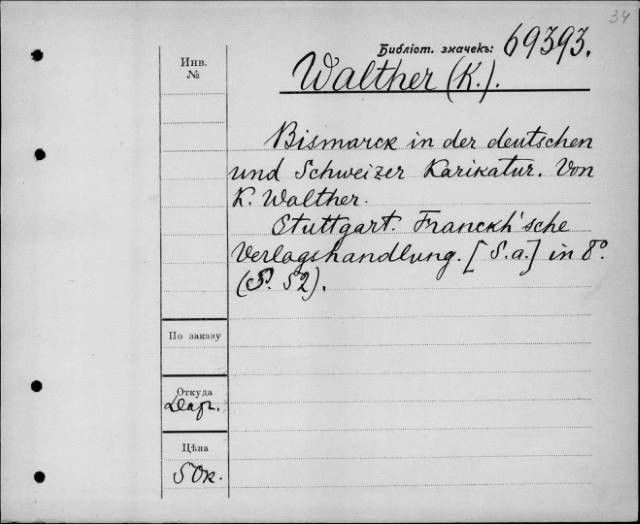 34
Библіот. значекъ: 69393.
Инв.
№
Walther (K.).
Bismarck in der deutschen
und Schweizer Karikatur. Von
K. Walther.
Stuttgart. Franckh'sche
Verlagshandlung. [S.a.] in 8°.
(S. 52).
По заказу
Откуда
Цѣна
50к.